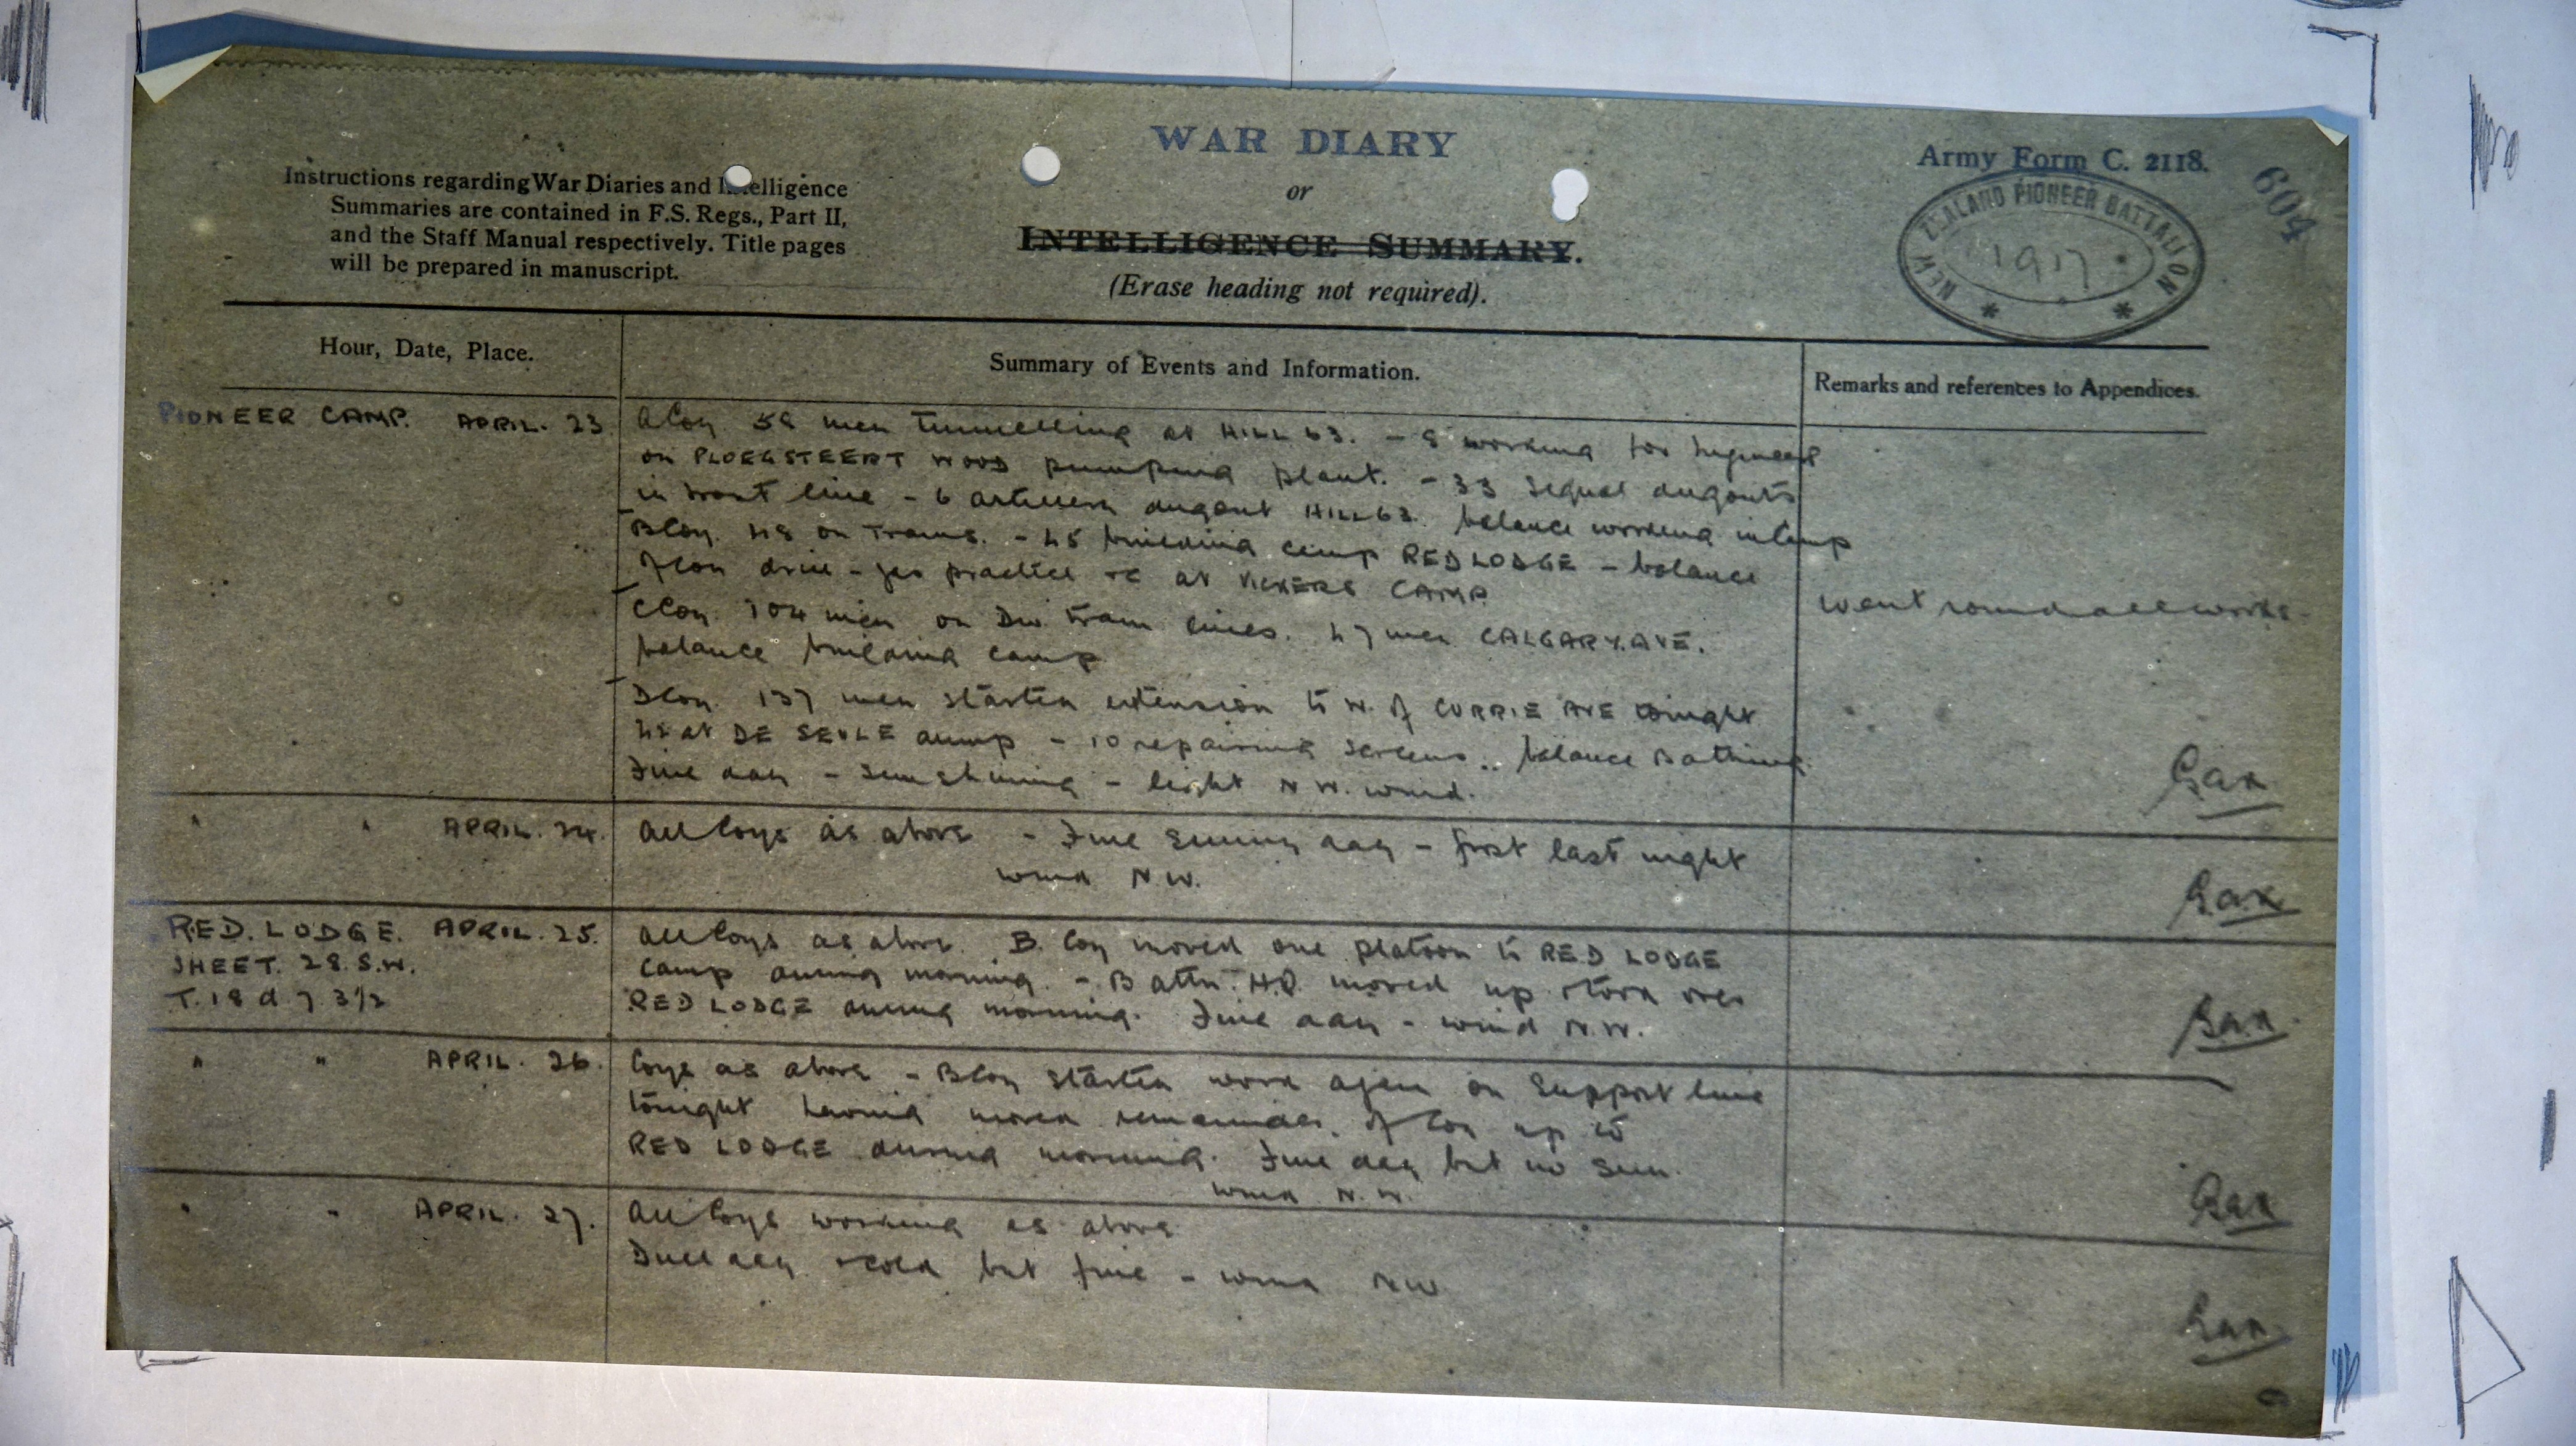 WAR DIARY
or
INTELLIGENCE SUMMARY.
(Erase heading not required).
Instructions regarding War Diaries and Intelligence
Summaries are contained in F.S. Regs., Part II,
and the Staff Manual respectively. Title pages
will be prepared in manuscript.
Army Form C. 2118.
604
NEW ZEALAND PIONEER BATTALION
1917
Hour, Date, Place.
Summary of Events and Information.
Remarks and references to Appendices.
PIONEER CAMP. APRIL. 23
A Coy 58 men tunnelling at HILL 63. - 8 working for Engineers
on PLOEGSTEERT WOOD pumping plant. - 33 Signal dugouts
in front line - 6 artillery dugout HILL 63. balance working in Camp
B Coy. 48 on Trams. - 45 building camp RED LODGE - balance
of Coy drill - gas practice &c at VICKERS CAMP
C Coy. 104 men on Div tram lines. 47 men CALGARY. AVE.
balance building camp
went round all works
D Coy. 137 men started extension to N. of CURRIE AVE tonight
at DE SEULE dump - 10 repairing screens.. balance Bathing
Fine day - Sun shining - light N W. wind.
" " APRIL. 24.
All Coys as above - Fine Sunny day - frost last night
wind N W.
RED. LODGE. APRIL. 25.
SHEET. 28. S.W.
T. 18 d 7 3½
All Coys as above. B. Coy moved one platoon to RED LODGE
Camp during morning. - Battn. H.Q. moved up & took over
RED LODGE during morning. Fine day - wind N.W.
" " APRIL. 26.
Coys as above - B Coy started work again on Support line
tonight having moved remainder of Coy up to
RED LODGE during morning. Fine day but no sun.
wind N.W.
" " APRIL. 27.
All Coys working as above
Dull day & cold but fine - wind NW